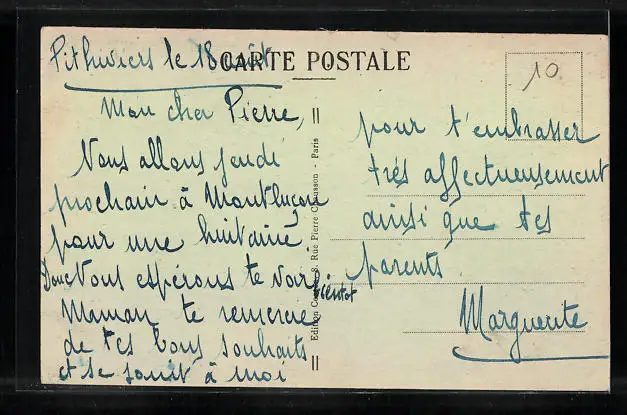 CARTE POSTALE
10
Pithiviers le 18 août
Mon cher Pierre,
Nous allons jeudi
prochain à Montluçon
pour une huitaine.
Donc Nous espérons te voir
bientôt
Maman te remercie
de tes bons souhaits
et se joint à moi
Rue Pierre Chausson - Paris
pour t'embrasser
très affectueusement
ainsi que tes
parents
Marguerite